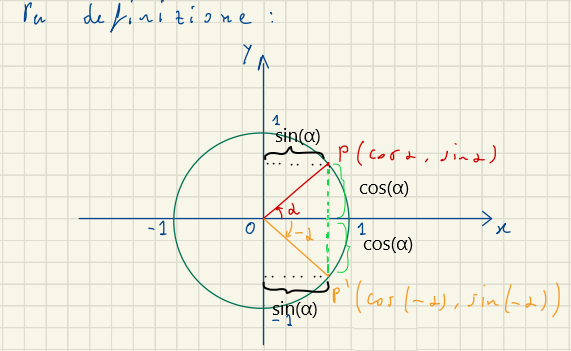 Per definizione :
y
1
sin(α)
P (cos α , sin α)
cos(α)
α
-1
0
-α
1
x
cos(α)
P' (cos (-α) , sin (-α))
sin(α)
-1